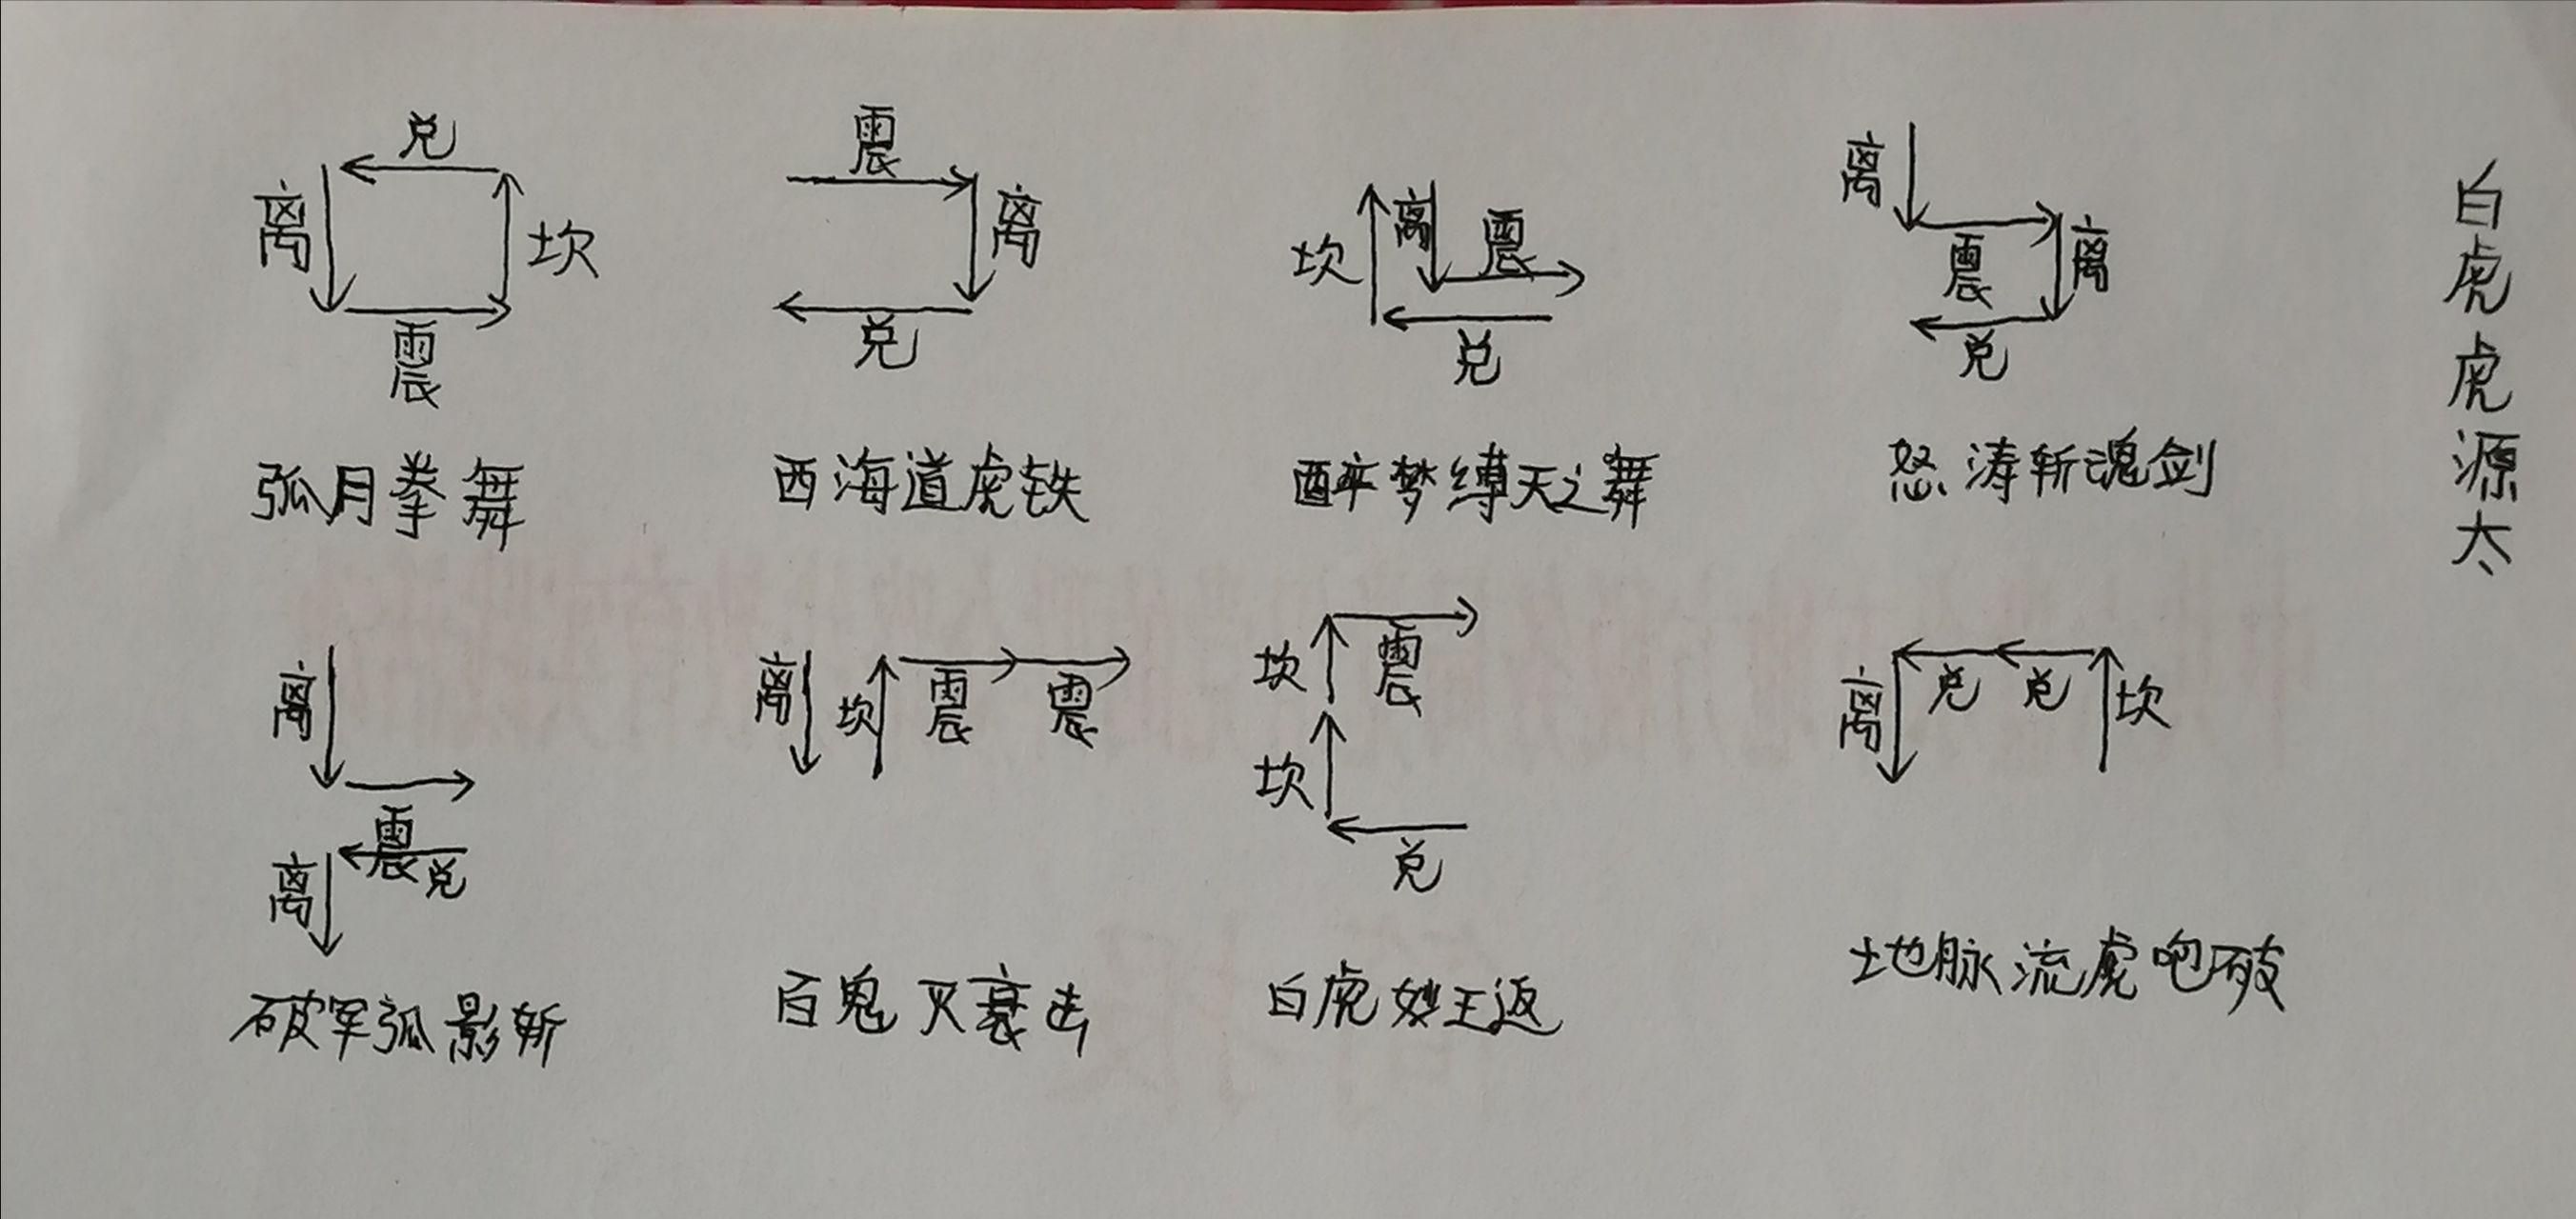 兑
离
坎
震
弧月拳舞
震
离
兑
西海道虎铁
坎
离
震
兑
醉梦缚天之舞
离
震
离
兑
怒涛斩魂剑
白虎虎源太
离
震
兑
离
破军弧影斩
离
坎
震
震
百鬼灭衰击
坎
震
坎
兑
白虎妙王返
离
兑
兑
坎
地脉流虎咆破